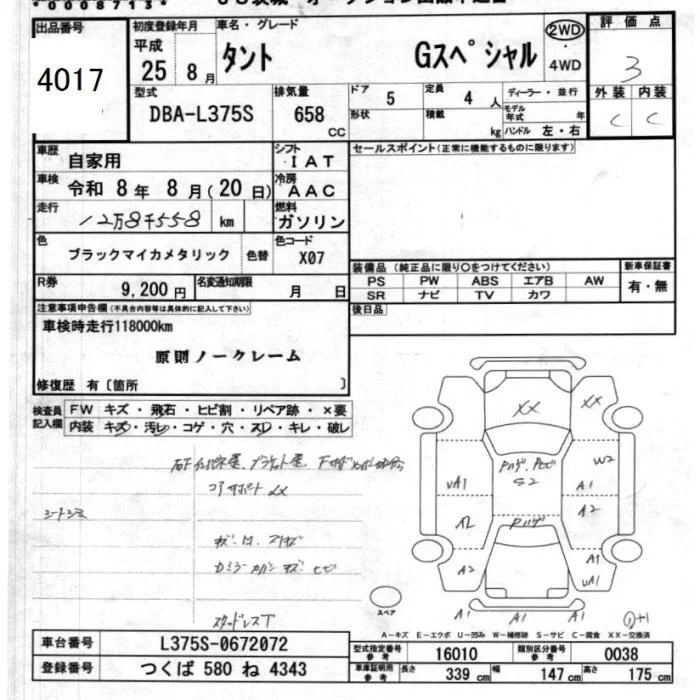 *0008713*
出品番号
4017
初度登録年月
平成
25年 8月
車名・グレード
タント Gスペシャル
2WD
・
4WD
評価点
3
外装 内装
C C
型式
DBA-L375S
排気量
658 CC
ドア 5
定員 4人
形状
積載 kg
ディーラー・並行
モデル年式 年
ハンドル 左・右
車歴
自家用
シフト
IAT
車検
令和 8年 8月(20日)
冷房
AAC
走行
12万8千558 km
燃料
ガソリン
色
ブラックマイカメタリック
色替
色コード
X07
R券
9,200円
名変通知期限
月 日
セールスポイント(正常に機能するものに限ります)
装備品 (純正品に限り○をつけてください)
PS PW ABS エアB AW
SR ナビ TV カワ
新車保証書
有・無
後日品
注意事項申告欄(不具合内容等は具体的に記入して下さい)
車検時走行118000km
原則ノークレーム
修復歴 有〔箇所 〕
検査員記入欄
FW キズ・飛石・ヒビ割・リペア跡・×要
内装 キズ・汚レ・コゲ・穴・スレ・キレ・破レ
コアサポート XX
シートシミ
スタッドレスT
XX
XX
W2
S2
UA1
A1
A2
A2
A2
A1
UA1
A1
A1
A1
スペア
A-キズ E-エクボ U-凹み W-補修跡 S-サビ C-腐食 XX-交換済
車台番号 L375S-0672072
登録番号 つくば 580 ね 4343
型式指定番号 参考 16010
類別区分番号 参考 0038
車庫証明用 参考 長さ 339cm 幅 147cm 高さ 175cm